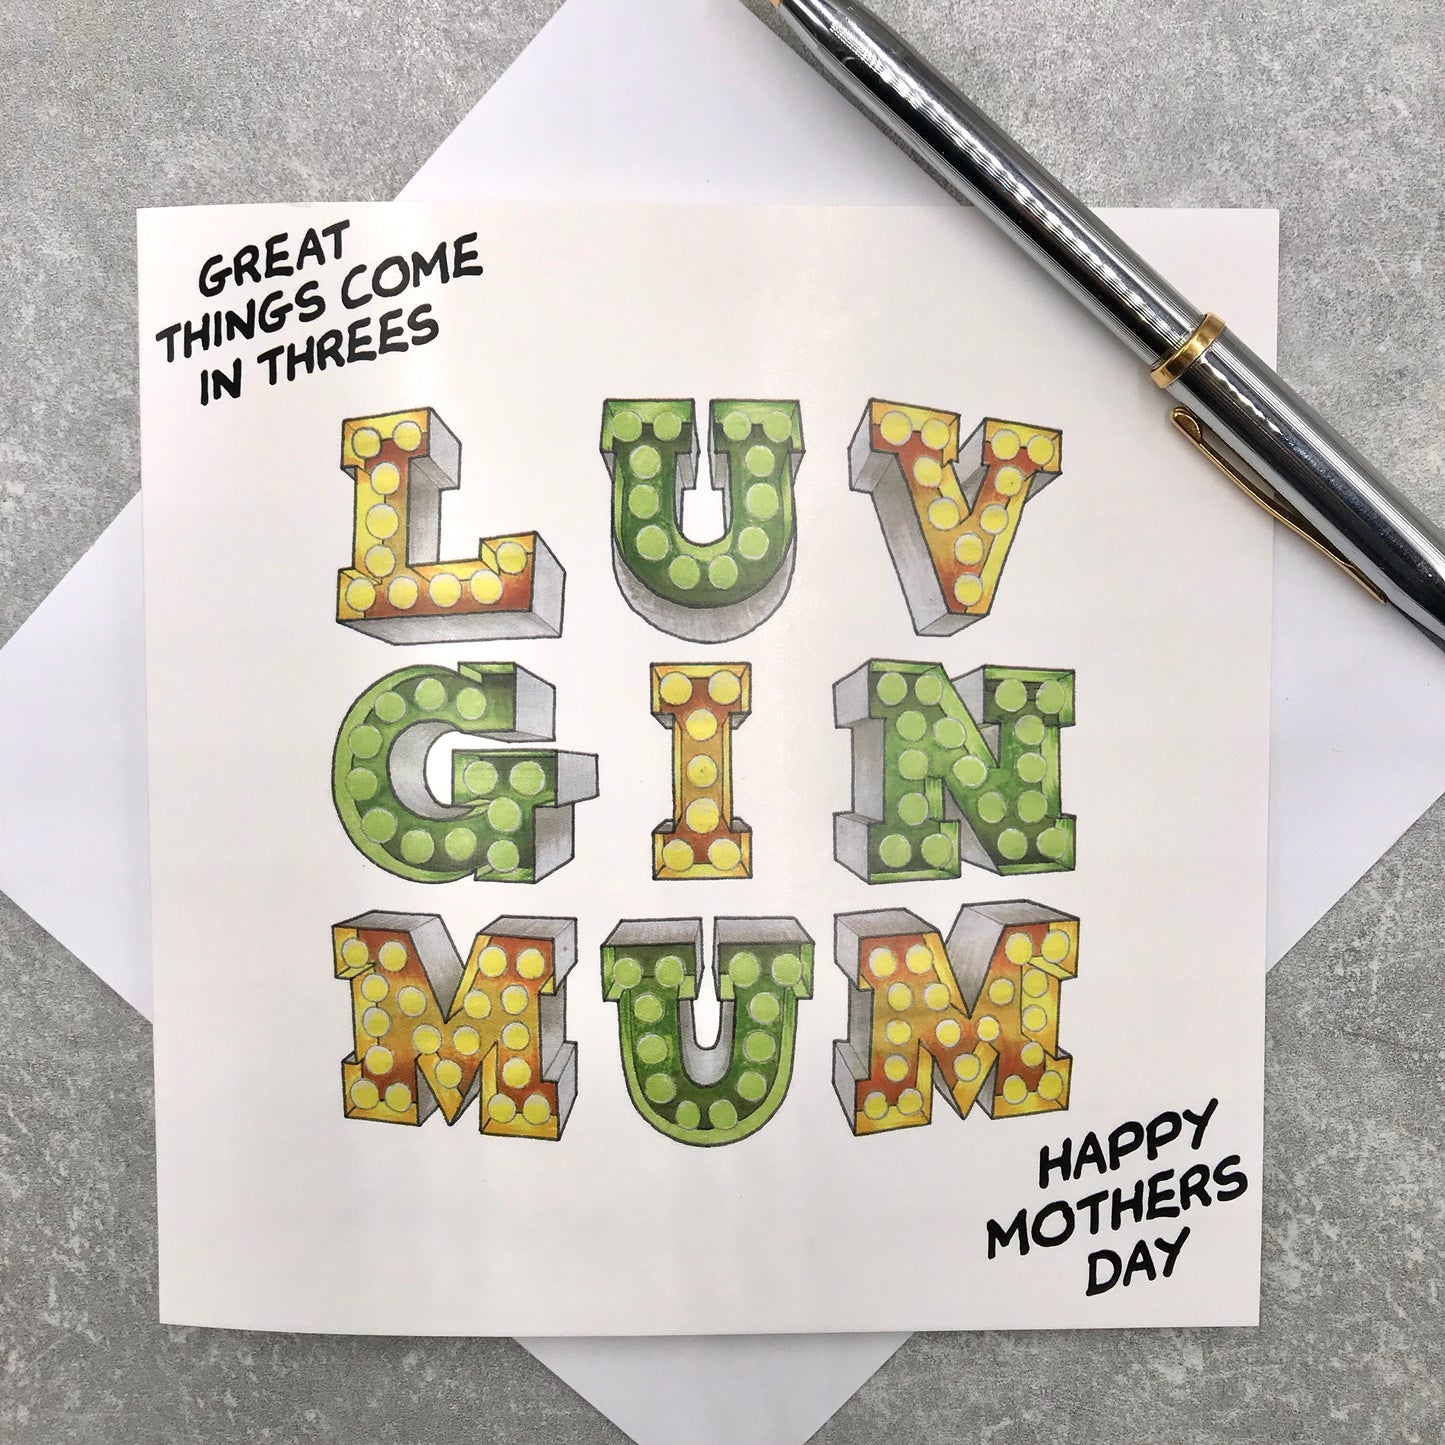 GREAT
THINGS COME
IN THREES
LUV
GIN
MUM
HAPPY
MOTHERS
DAY